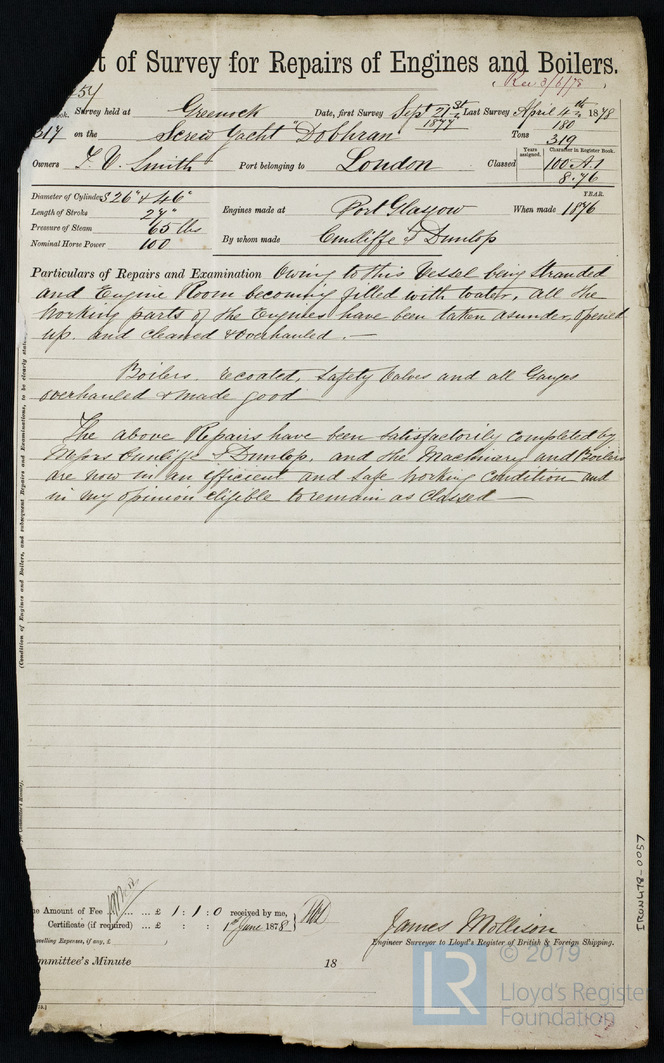 t of Survey for Repairs of Engines and Boilers.
Rec 3/6/78
54
ook. Survey held at Greenock Date, first Survey Sept 21st 1877 Last Survey April 4th 1878
317 on the Screw Yacht "Dobhran" Tons 180 319
Owners T. V. Smith Port belonging to London Classed Years assigned. Character in Register Book. 100 A.1 8.76
Diameter of Cylinders 26" & 46"
Length of Stroke 27"
Pressure of Steam 65 lbs
Nominal Horse Power 100
Engines made at Port Glasgow When made YEAR. 1876
By whom made Cunliffe & Dunlop
Particulars of Repairs and Examination Owing to this Vessel being Stranded
and Engine Room becoming filled with water, all the
working parts of the Engines have been taken asunder, opened
up. and cleaned & overhauled. —
Boilers. recoated, Safety Valves and all Gauges
overhauled & made good
The above Repairs have been satisfactorily completed by
Messrs Cunliffe & Dunlop, and the Machinery and Boilers
are now in an efficient and safe working condition and
in my opinion eligible to remain as Classed —
(Condition of Engines and Boilers, and subsequent Repairs and Examinations, to be clearly stat
e Amount of Fee ... ... £ 1 : 1 : 0 received by me,
Certificate (if required) ... £ : : 1st June 1878
velling Expenses, if any, £
James Mollison
Engineer Surveyor to Lloyd's Register of British & Foreign Shipping.
mmittee's Minute 18
IRON478-0057
© 2019
LR
Lloyd's Register
Foundation